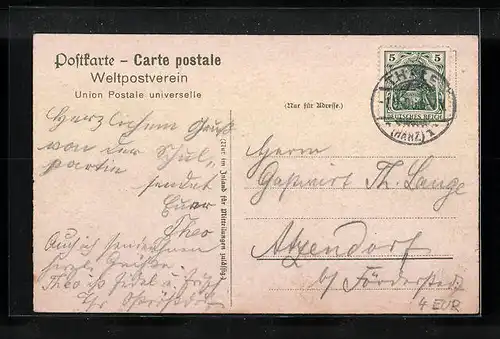 Postkarte – Carte postale
Weltpostverein
Union Postale universelle
Herzlichen Gruß
von der
partie
sendet
Euer
Theo
Auch ich sende Ihnen
herzl. Grüße
Theo ist fidel u.
(Nur für Adresse.)
(Nur im Inland für Mitteilungen zulässig.)
5 5
DEUTSCHES REICH
THALE
(HARZ) 1
Herrn
Gastwirt Th. Lange
Atzendorf
b/ Förderstedt
4 EUR